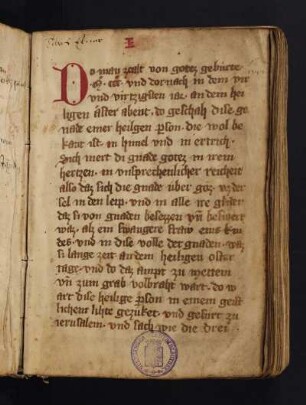 Do man zalt von gotez gebürte
m° ccc° und dornach in dem vir
und virtzigsten iar an dem hei
ligen oster abent do geschah dise ge
nade einer heiligen pson die wol be
kant ist in himel und in ertrich
Sich mert di gnade gotez in irem
hertzen in unsprechenlicher reicheit
also daz sich die gnade über goz uz der
sel in den leip und in alle ire glider
daz si von gnaden besezzen und beswert
waz als ein swangere fraw eins kin
des und in dise volle der gnaden waz
si lange zeit an dem heiligen oster
tage und do daz ampt zu mettein
und zum grab volbraht wart do w
art dise heilige pson in einem geist
lichem lihte gezuket und gefürt zu
ierusalem und sach wie die drei